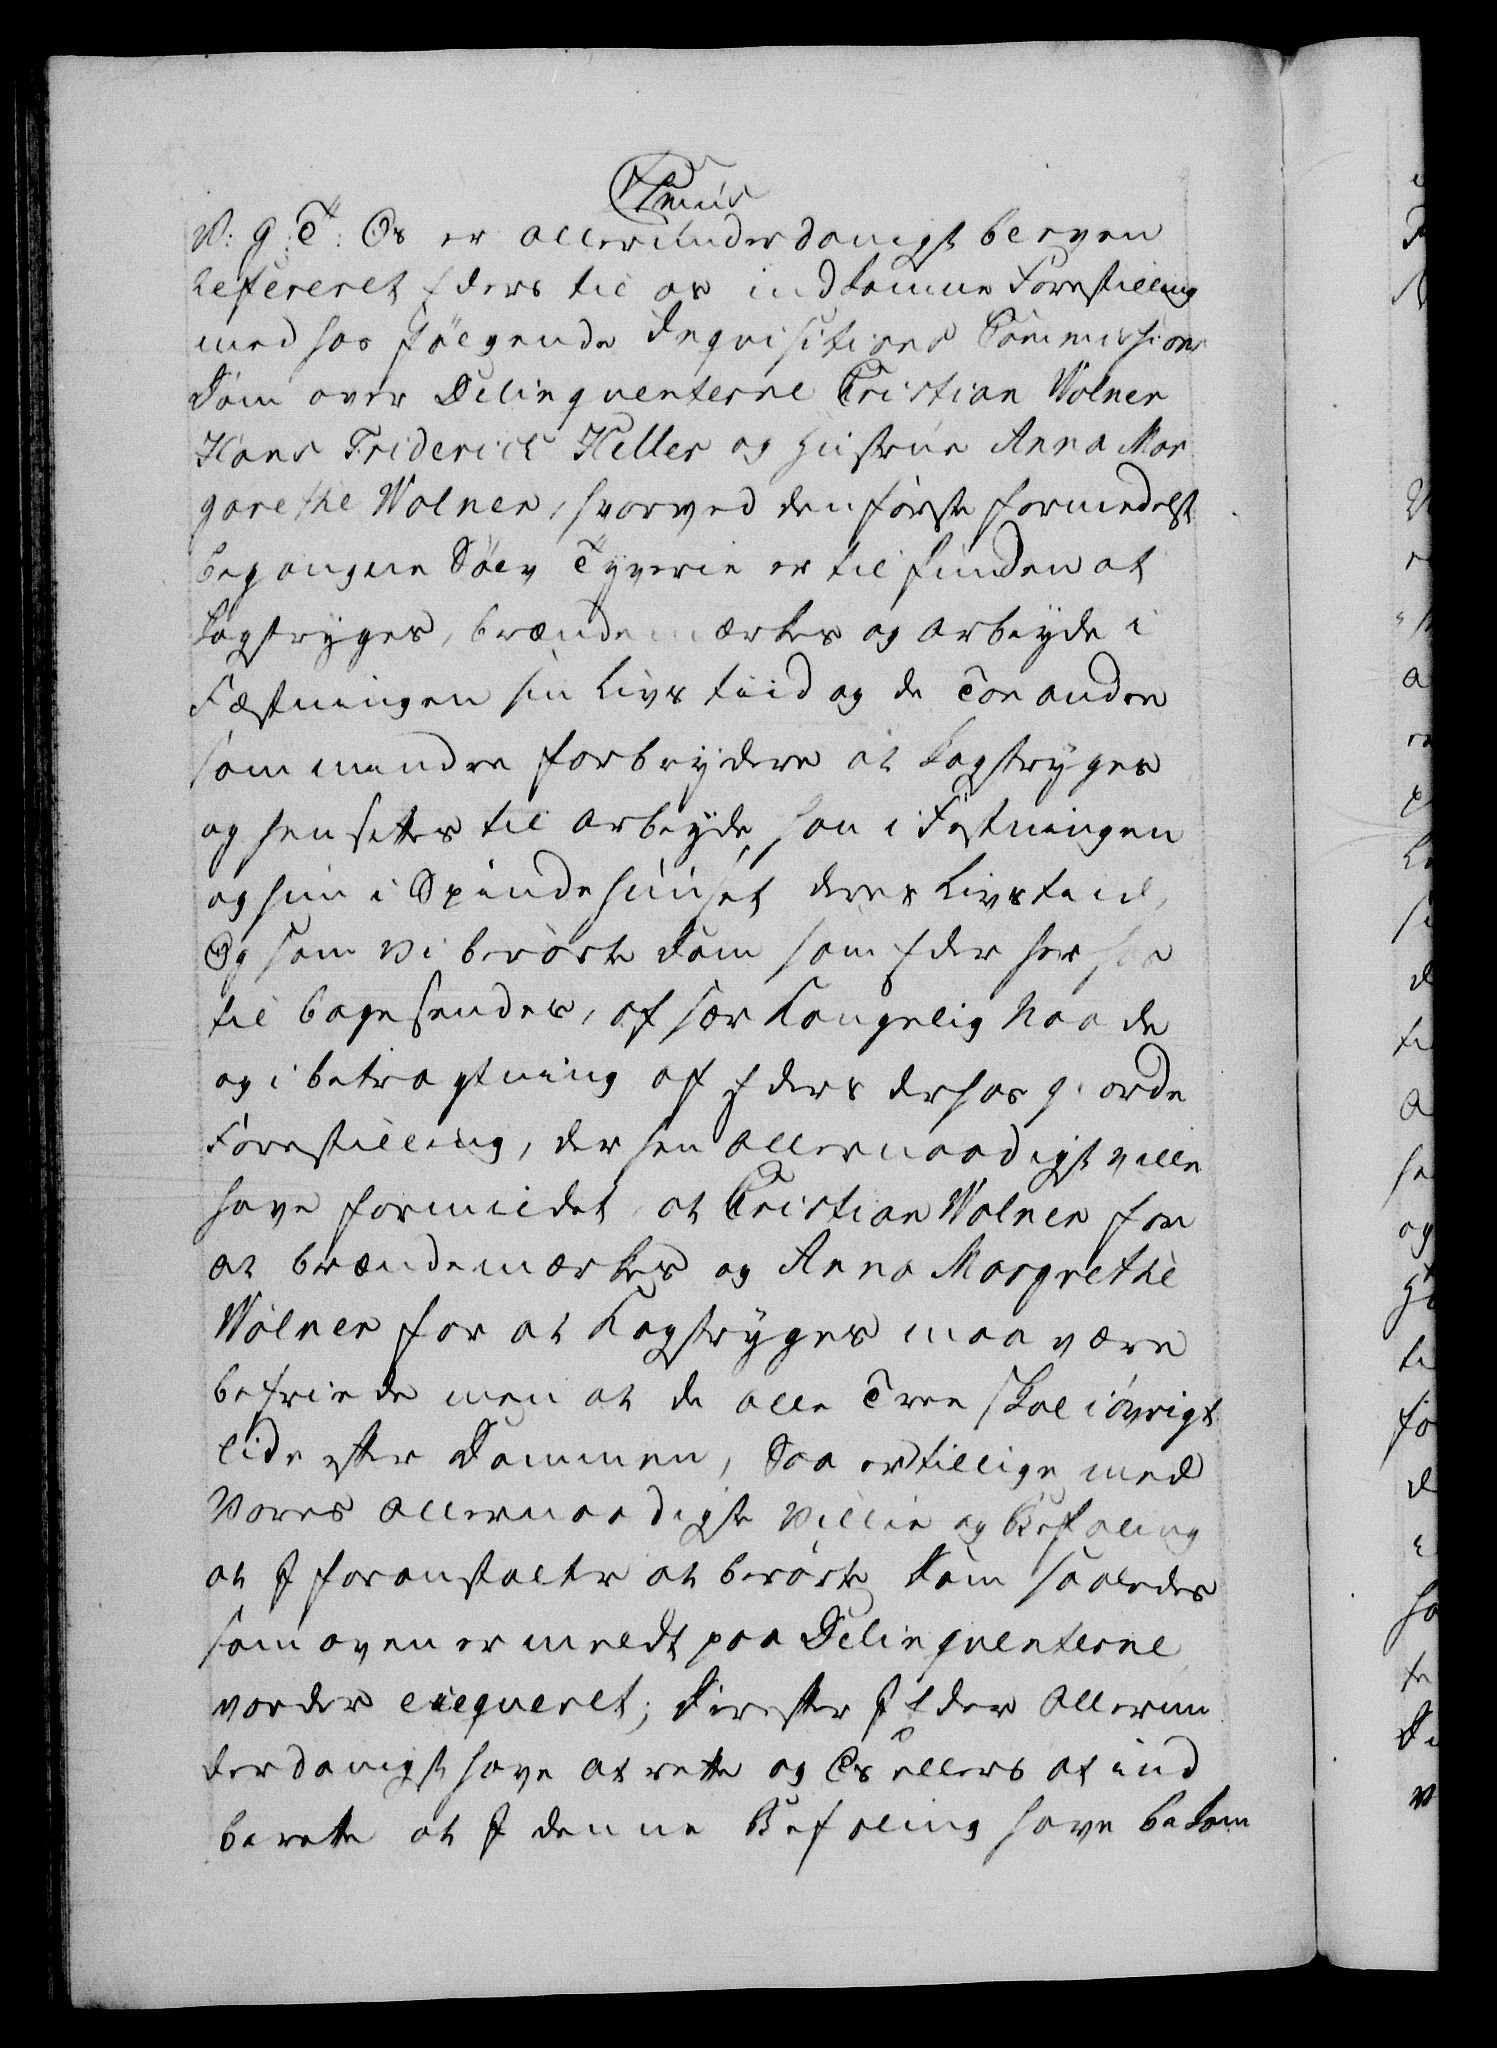 V: G: T: Os er allerunderdanigst bleven
refereret Eders til os indkomne Forestilling
med hos følgende Inqvisitions Commissions
Dom over Delinqventerne Cristian Wolner
Hans Friderich Heller og Hustrue Anna Mar
garethe Wolner, hvorved den første formedelst
begangne Sølv Tyverie er tilfunden at
Kagstryges, brændemærkes og arbeyde i
Fæstningen sin Livs tiid og de Toe andre
som mindre forbrydere at Kagstryges
og hensettes til arbeyde, han i Festningen
og hun i Spindehuuset deres Livs tiid,
Og som vi berørte Dom som Eder her hos
tilbagesendes, af sær Kongelig Naade
og i betragtning af Eders derhos giorde
Forestilling, der hen allernaadigst ville
have formildet at Cristian Wolner for
at brændemærkes og Anna Margrethe
Wolner for at Kagstryges maa være
befriede men at de alle Tree skal iøvrigt
lide efter Dommen, Saa er tillige med
Vores allernaadigste Villie og Befaling
at I foranstalter at berørte Dom saaledes
som oven ermeldt paa Delinqventerne
vorder exeqveret; Derefter I Eder allerun
derdanigst have at rette og Os ellers at ind
berette at I denne Befaling have bekom